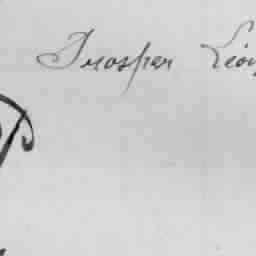 Prosper Léon